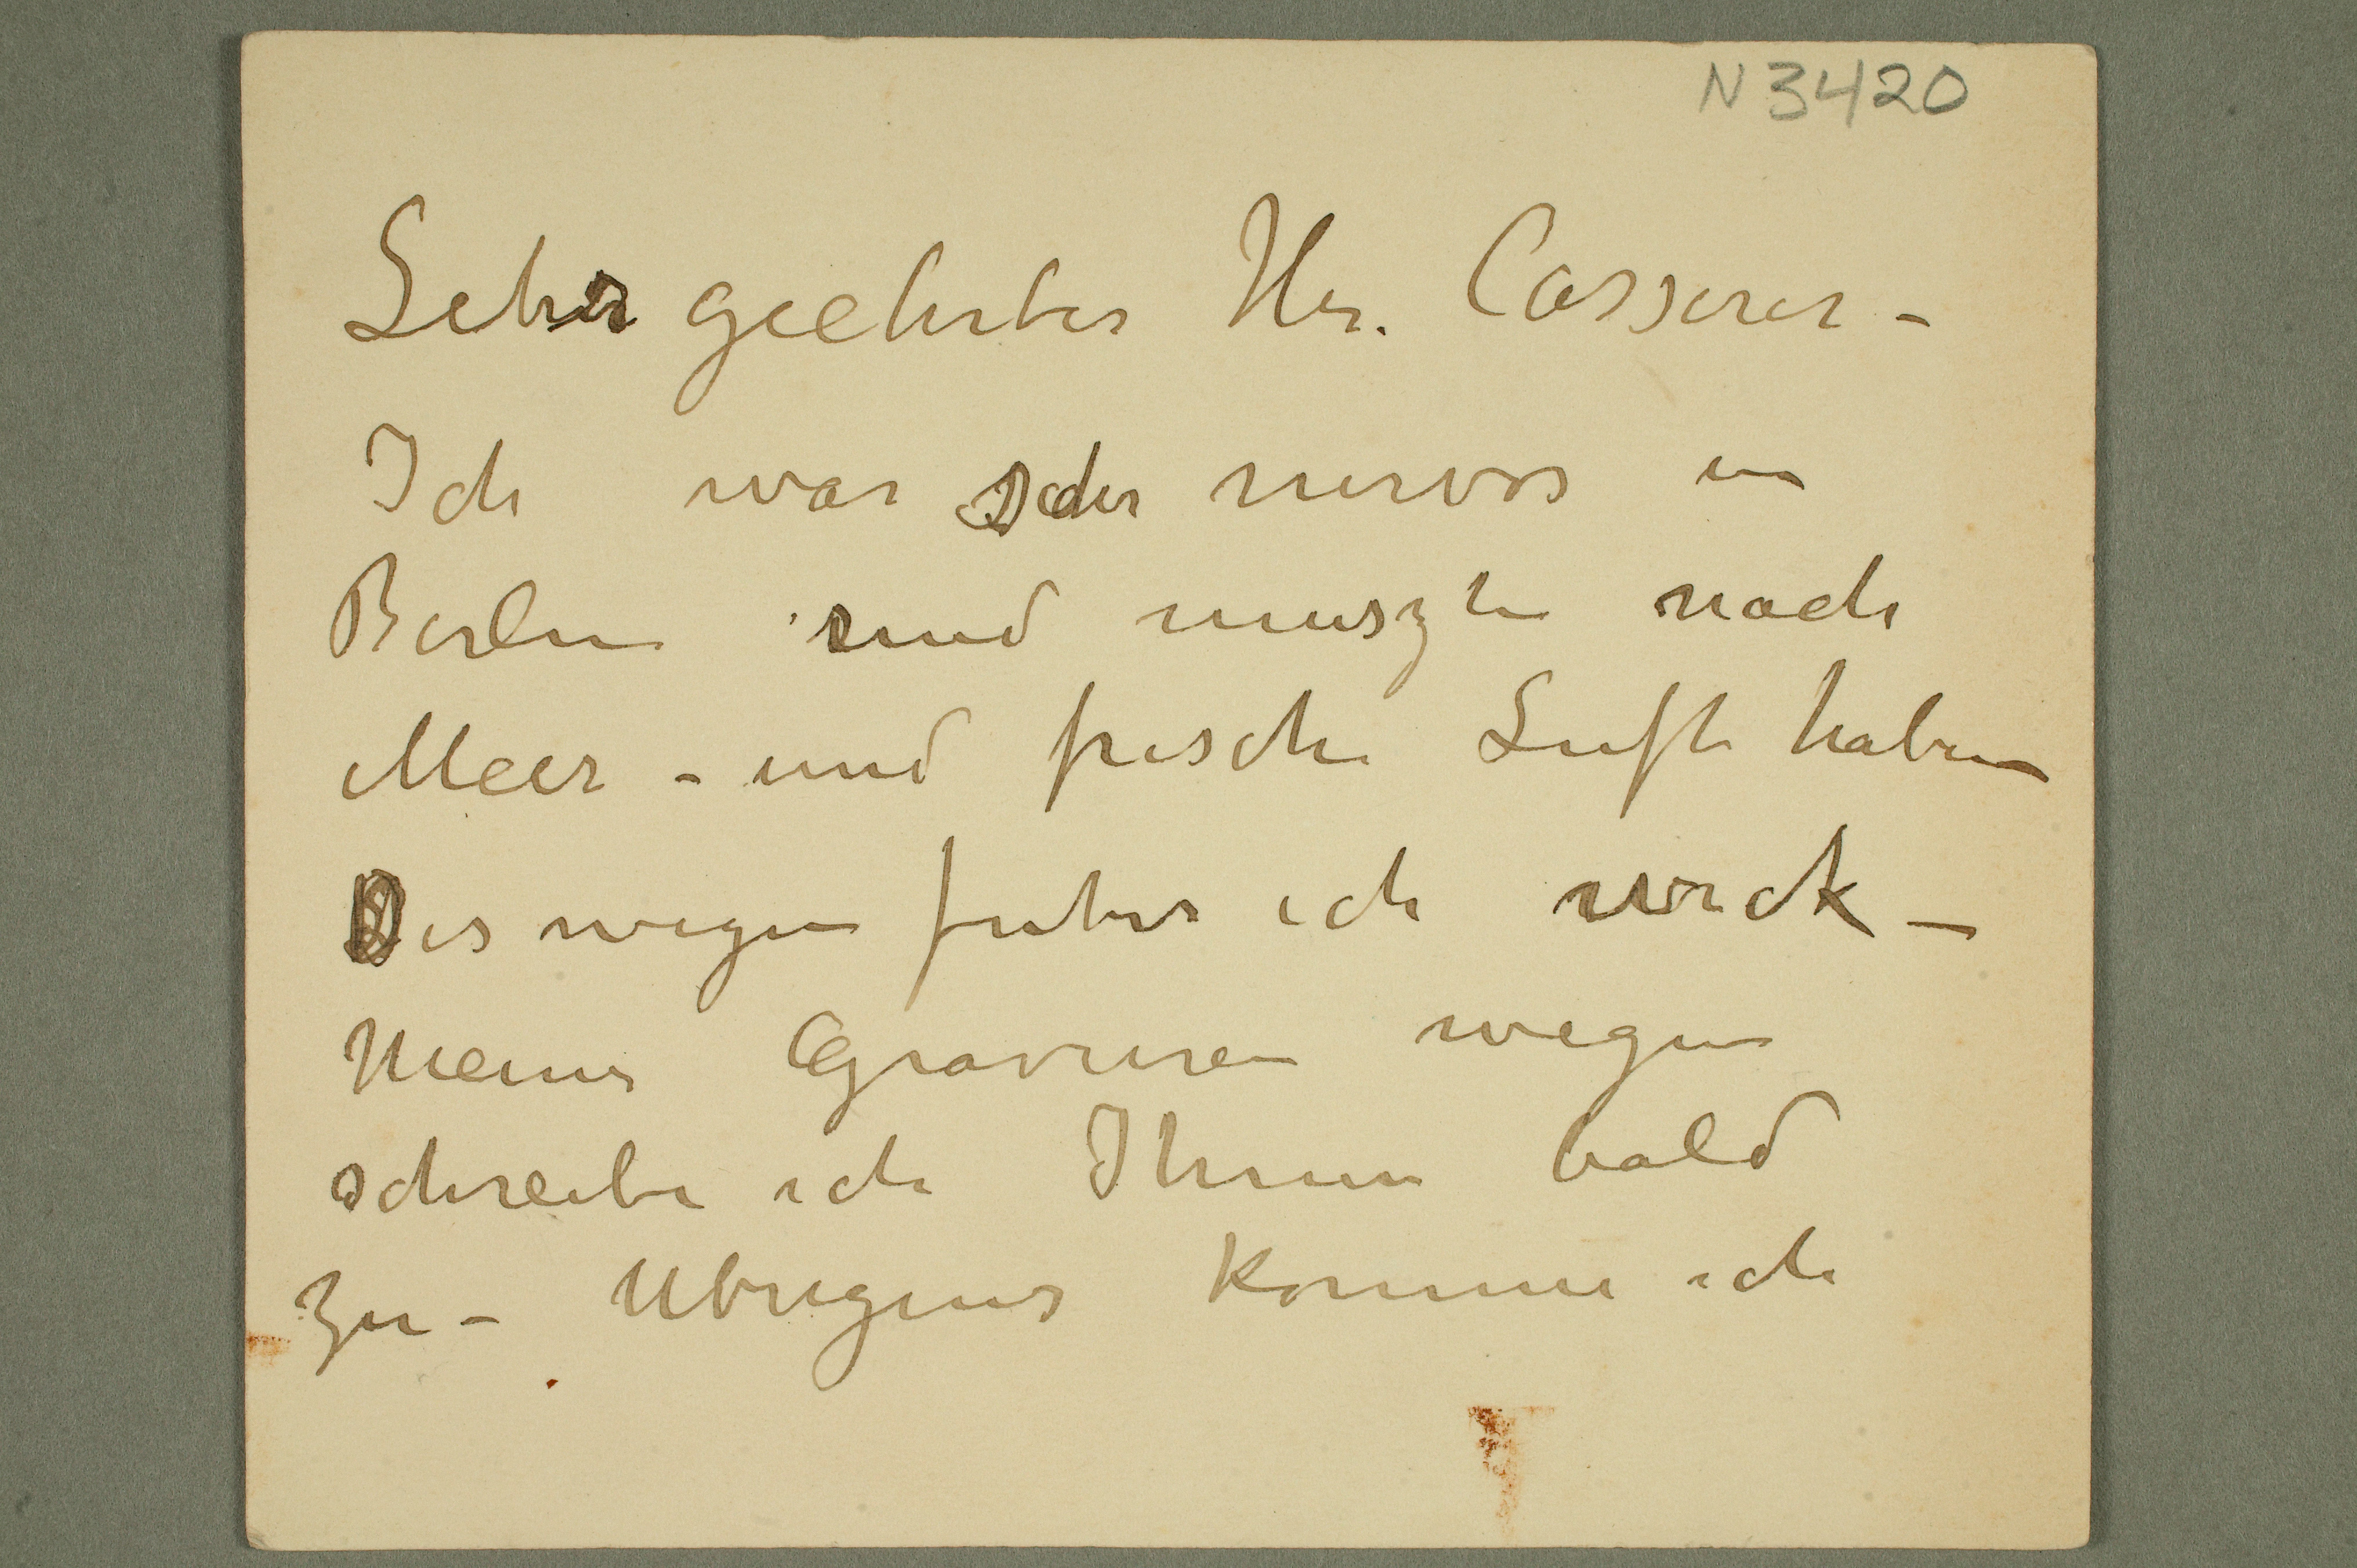 N 3420
Sehr geehrter Hr. Casserer –
Ich war sehr nervos in
Berlin und muszte nach
Meer – und frische Luft haben
Deswegen fuhr ich weck –
Meine Gravuren wegen
schreibe ich Ihnen bald
zu – Ubrigens komme ich